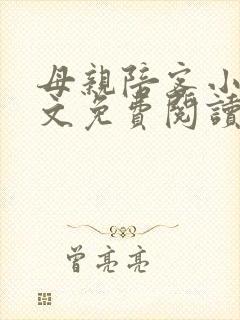 母親陪客小
文免費閱讀
曾亮亮